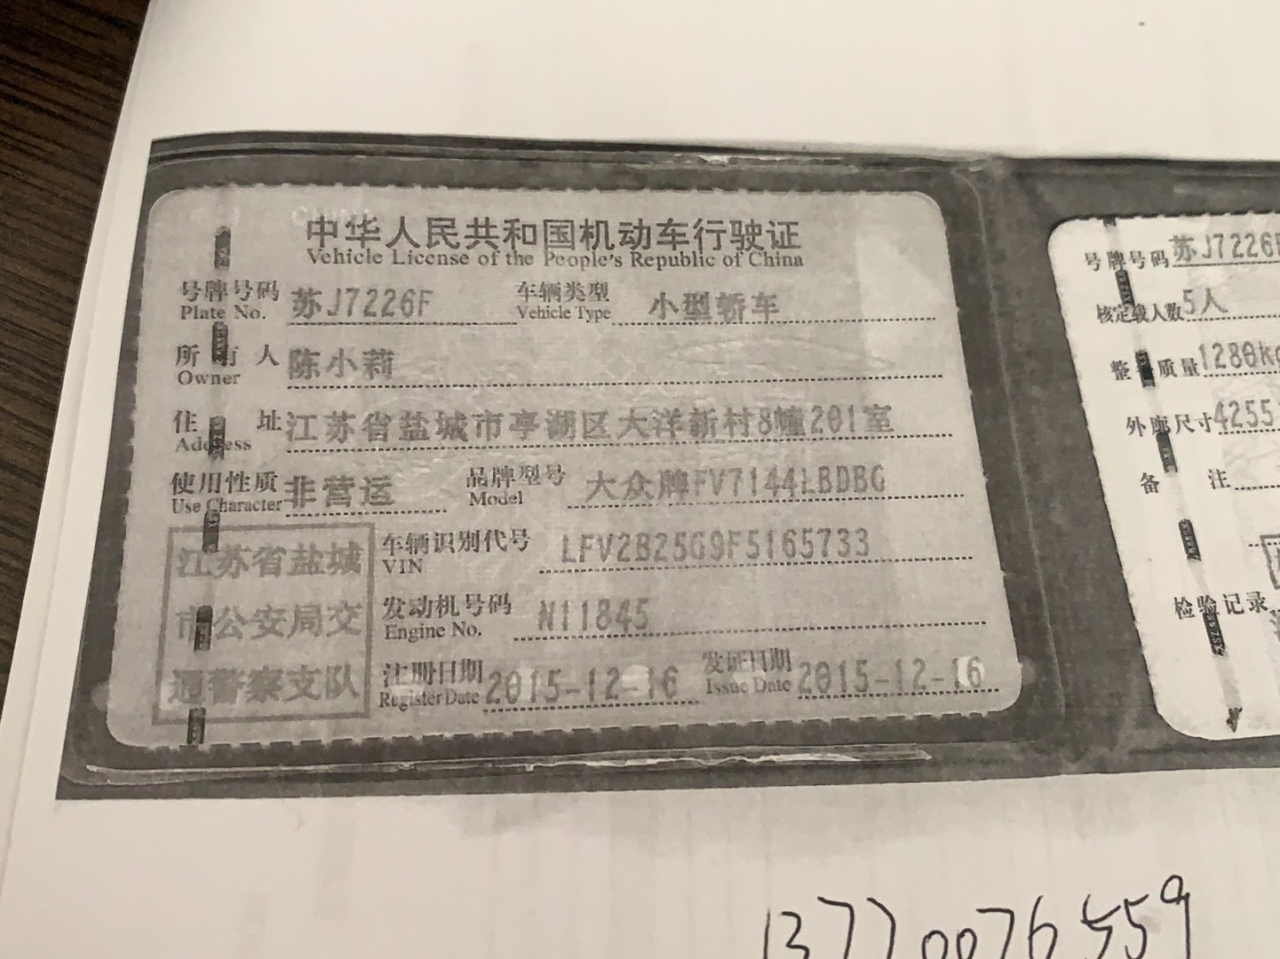 中华人民共和国机动车行驶证
Vehicle License of the People's Republic of China
号牌号码 苏J7226F 车辆类型 小型轿车
Plate No. Vehicle Type
所有人 陈小莉
Owner
住址 江苏省盐城市亭湖区大洋新村8幢201室
Address
使用性质 非营运 品牌型号 大众牌FV7144LBDBG
Use Character Model
江苏省盐城
市公安局交
通警察支队
车辆识别代号 LFV2B25G9F5165733
VIN
发动机号码 N11845
Engine No.
注册日期 2015-12-16 发证日期 2015-12-16
Register Date Issue Date
号牌号码 苏J7226F
核定载人数 5人
整 质量 1280kg
外廓尺寸 4255
备注
检验记录
13770076559